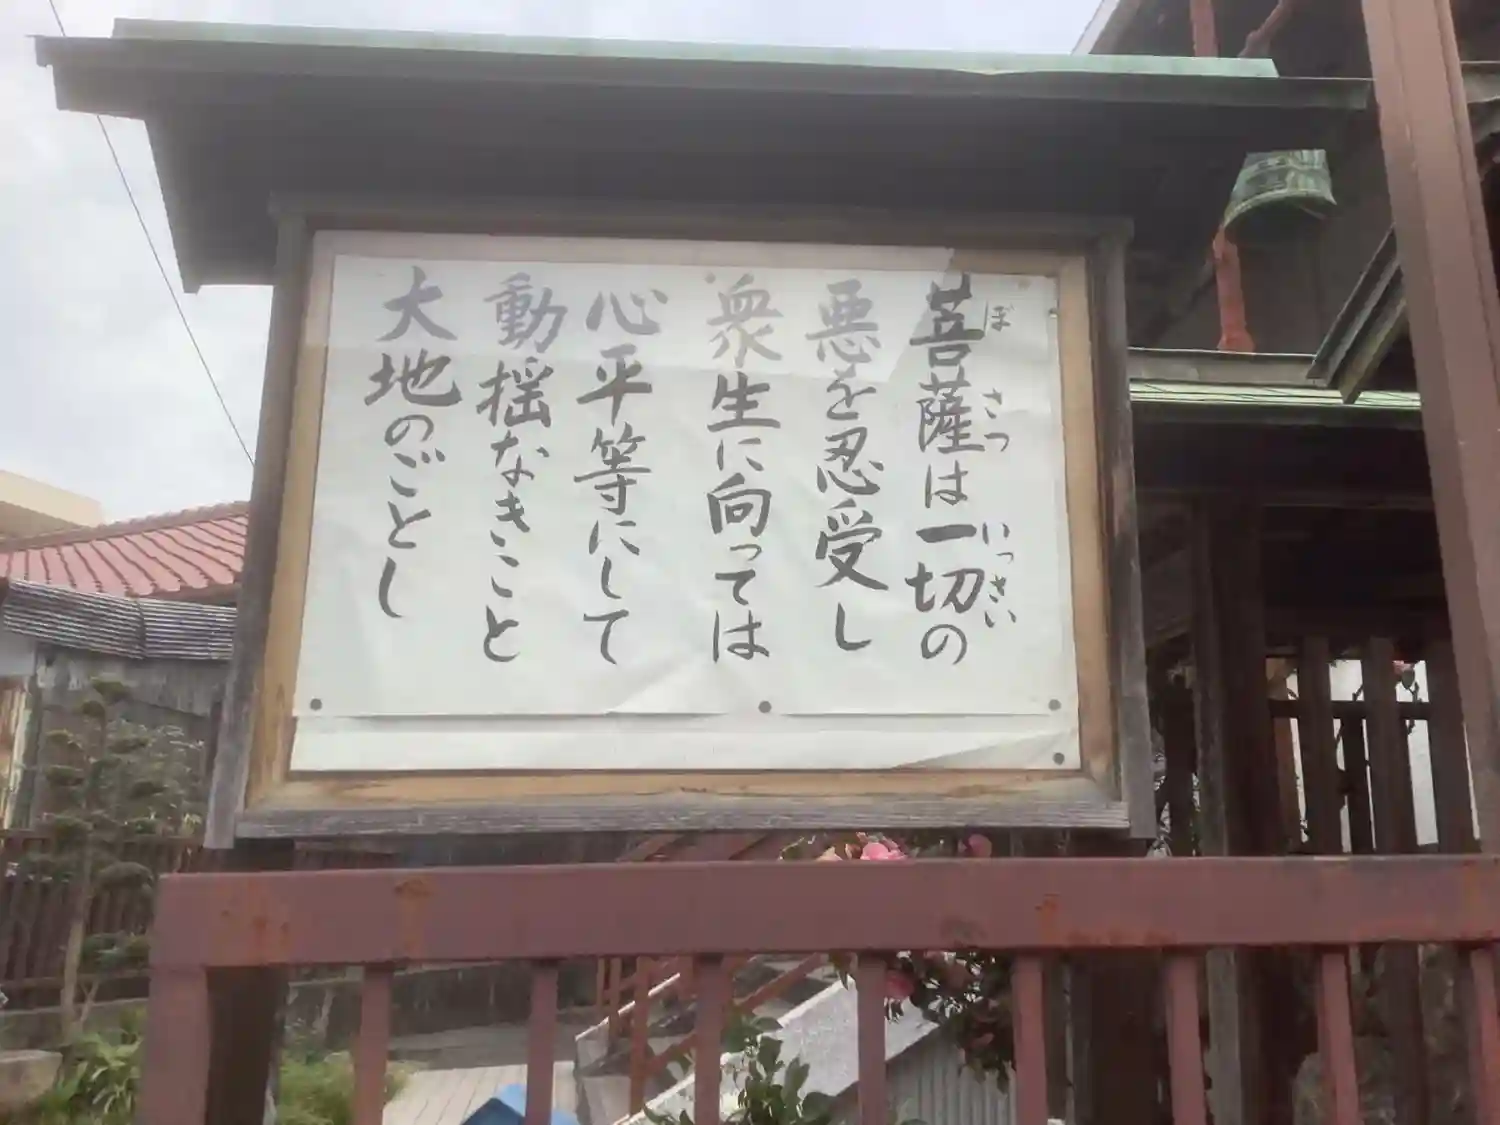 菩薩は一切の
ぼさついっさい
悪を忍受し
衆生に向っては
心平等にして
動揺なきこと
大地のごとし